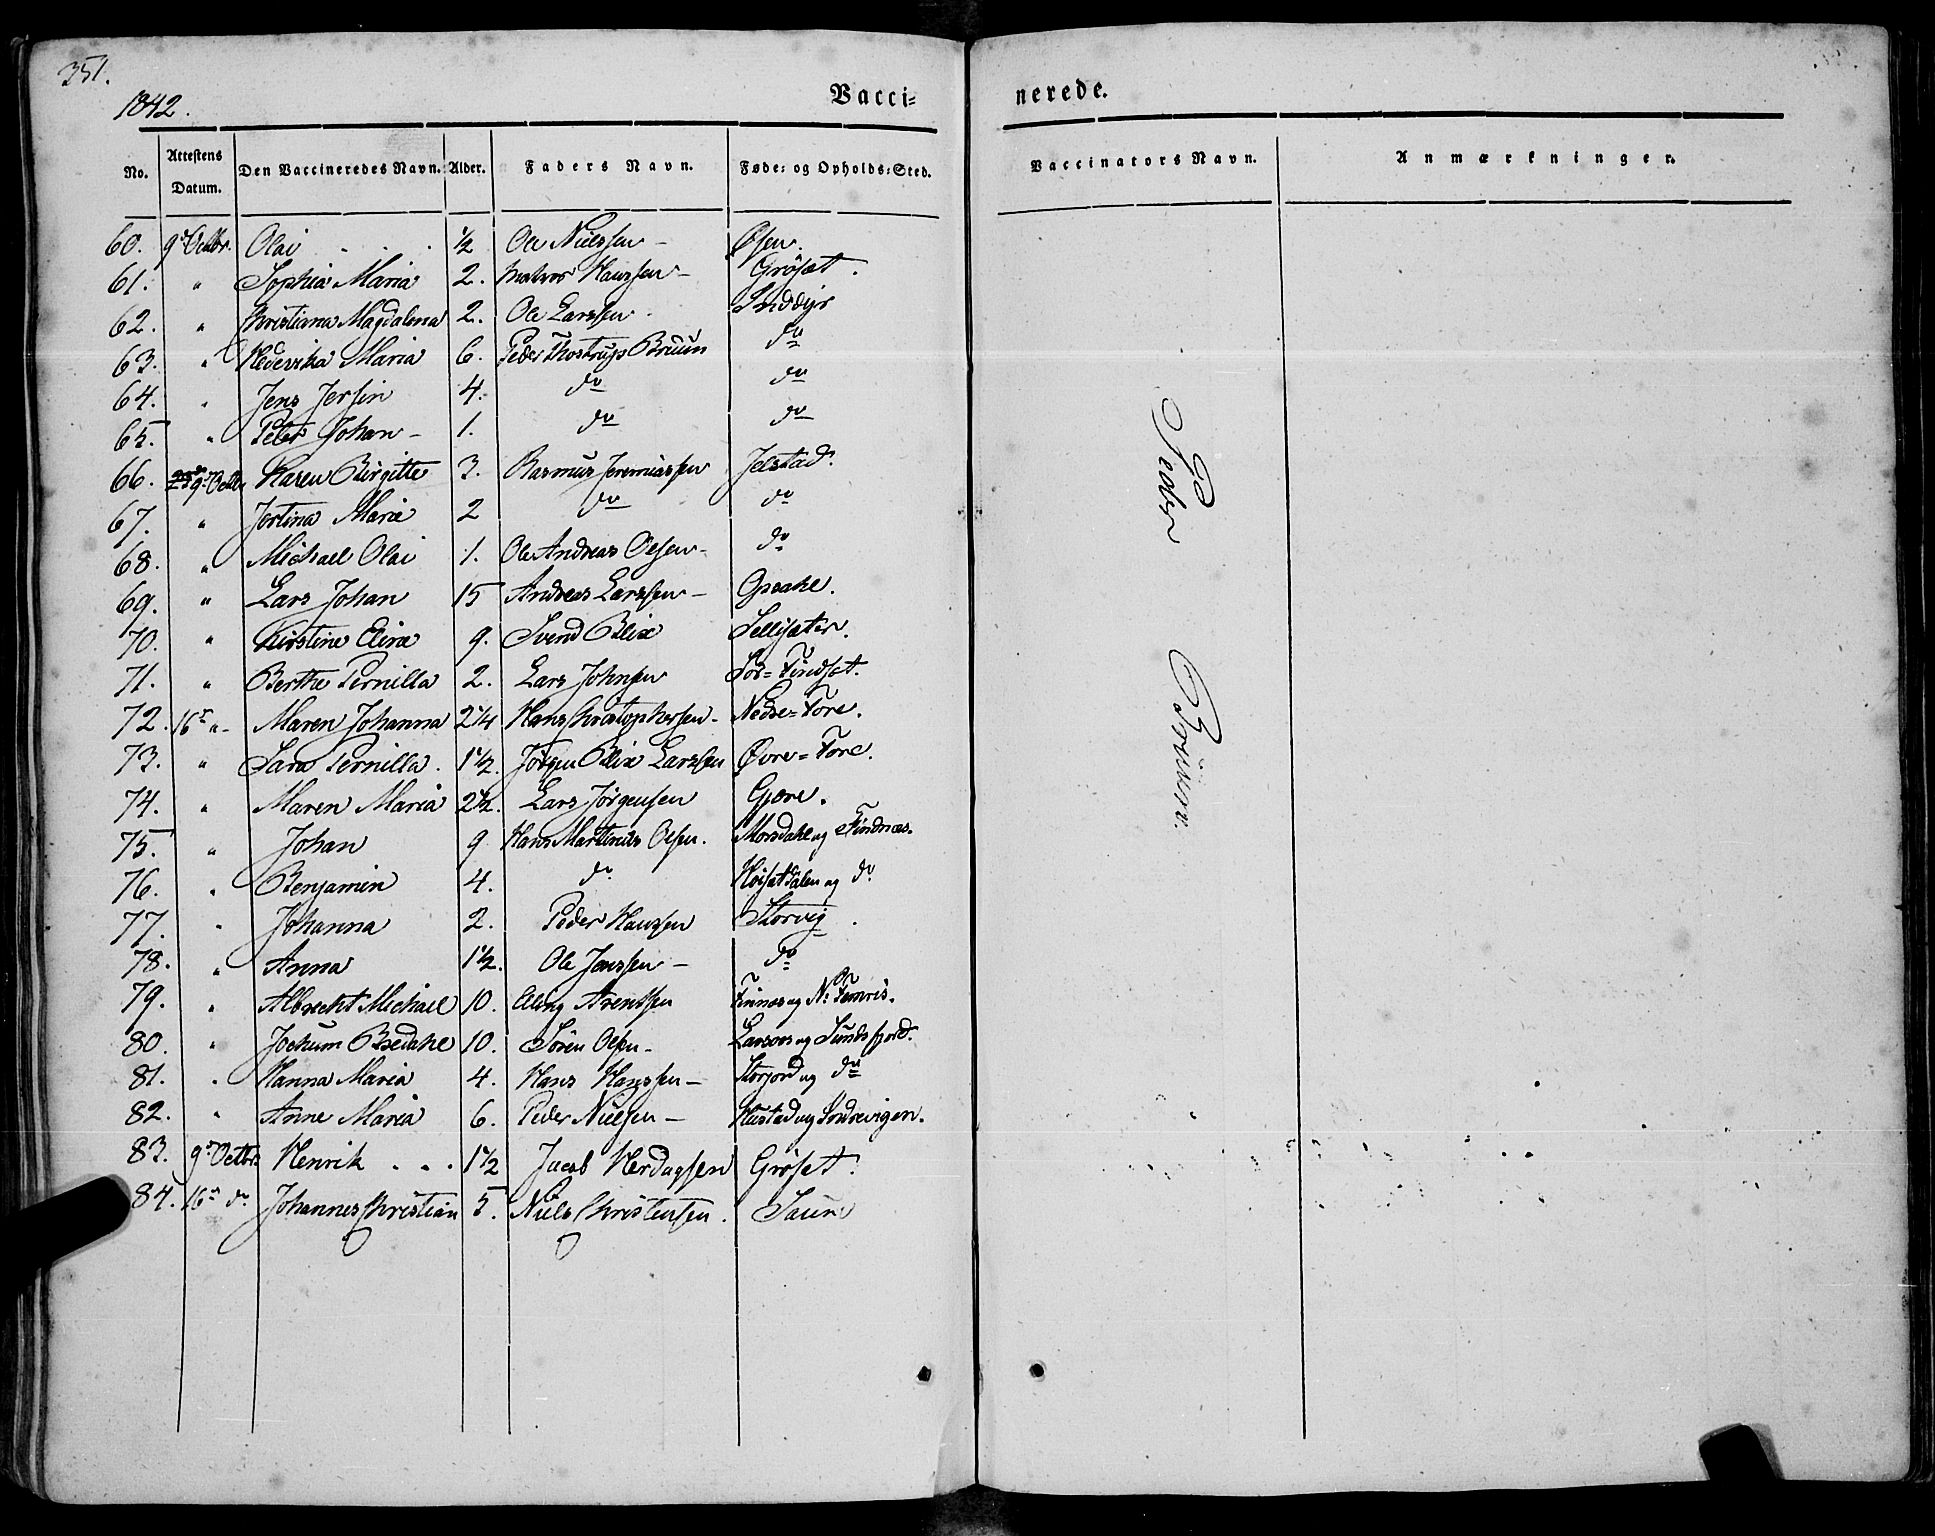 351.
1842.
Vacci=
nerede.
No. Attestens Datum. Den Vaccineredes Navn. Alder. Faders Navn. Føde= og Opholds=Sted. Vaccinators Navn. Anmærkninger.
60. 9de Octbr. Olai 1/2 Ole Nielssen - Øsen.
61. " Sophia Maria 2. Hanssen - Grøsæt.
62. " Christiana Magdalena 2. Ole Larssen. Inddyr
63. " Hedevika Maria 6. Peder Thostrup Bruun do
64. " Jens Jersin 4. do do
65. " Peter Johan - 1. do do
66. 9de Octbr Karen Birgitte 3. Rasmus Jeremiassen Jelstad.
67. " Jertina Maria 2 do do
68. " Michael Olai 1. Ole Andreas Olsen - do
69. " Lars Johan 15 Andreas Larssen - Opsahl.
70. " Kirstine Elisæ 9. Svend Blix Sellisæter.
71. " Berthe Pernilla 2. Lars Johnsen Sør=Findset.
72. 16de " - Maren Johanna 2 1/4 Hans Christophersen - Nedre=Tore.
73. " Sara Pernilla. 1 1/2. Jørgen Blix Larssen Øvre=Tore.
74. " Maren Maria 2 1/2. Lars Jørgensen Gjære.
75. " Johan 9 Hans Martinus Olsen. Morsdahl og Findnæs.
76. " Benjamin 4. do Høisetdalen og do
77. " Johanna 2. Peder Hansen Storvig.
78. " Anna 1 1/2. Ole Jenssen - do
79. " Albrecht Michael 10. Elling Arentsen Finnæs og N:
80. " Jochum Bredahl 10. Søren Olsen - Larsos og Sundsfjord.
81. " Hanna Maria 4. Hans Hanssen - Storjord og do
82. " Anne Maria 6. Peder Nielsen - Hustad og Sondrevigen.
83. 9de Octbr. Henrik 1 1/2 Jacob Herdagssen Grøset.
84. 16de do Johannes Christian 5. Niels Christensen. Saur
Peder Bruun.